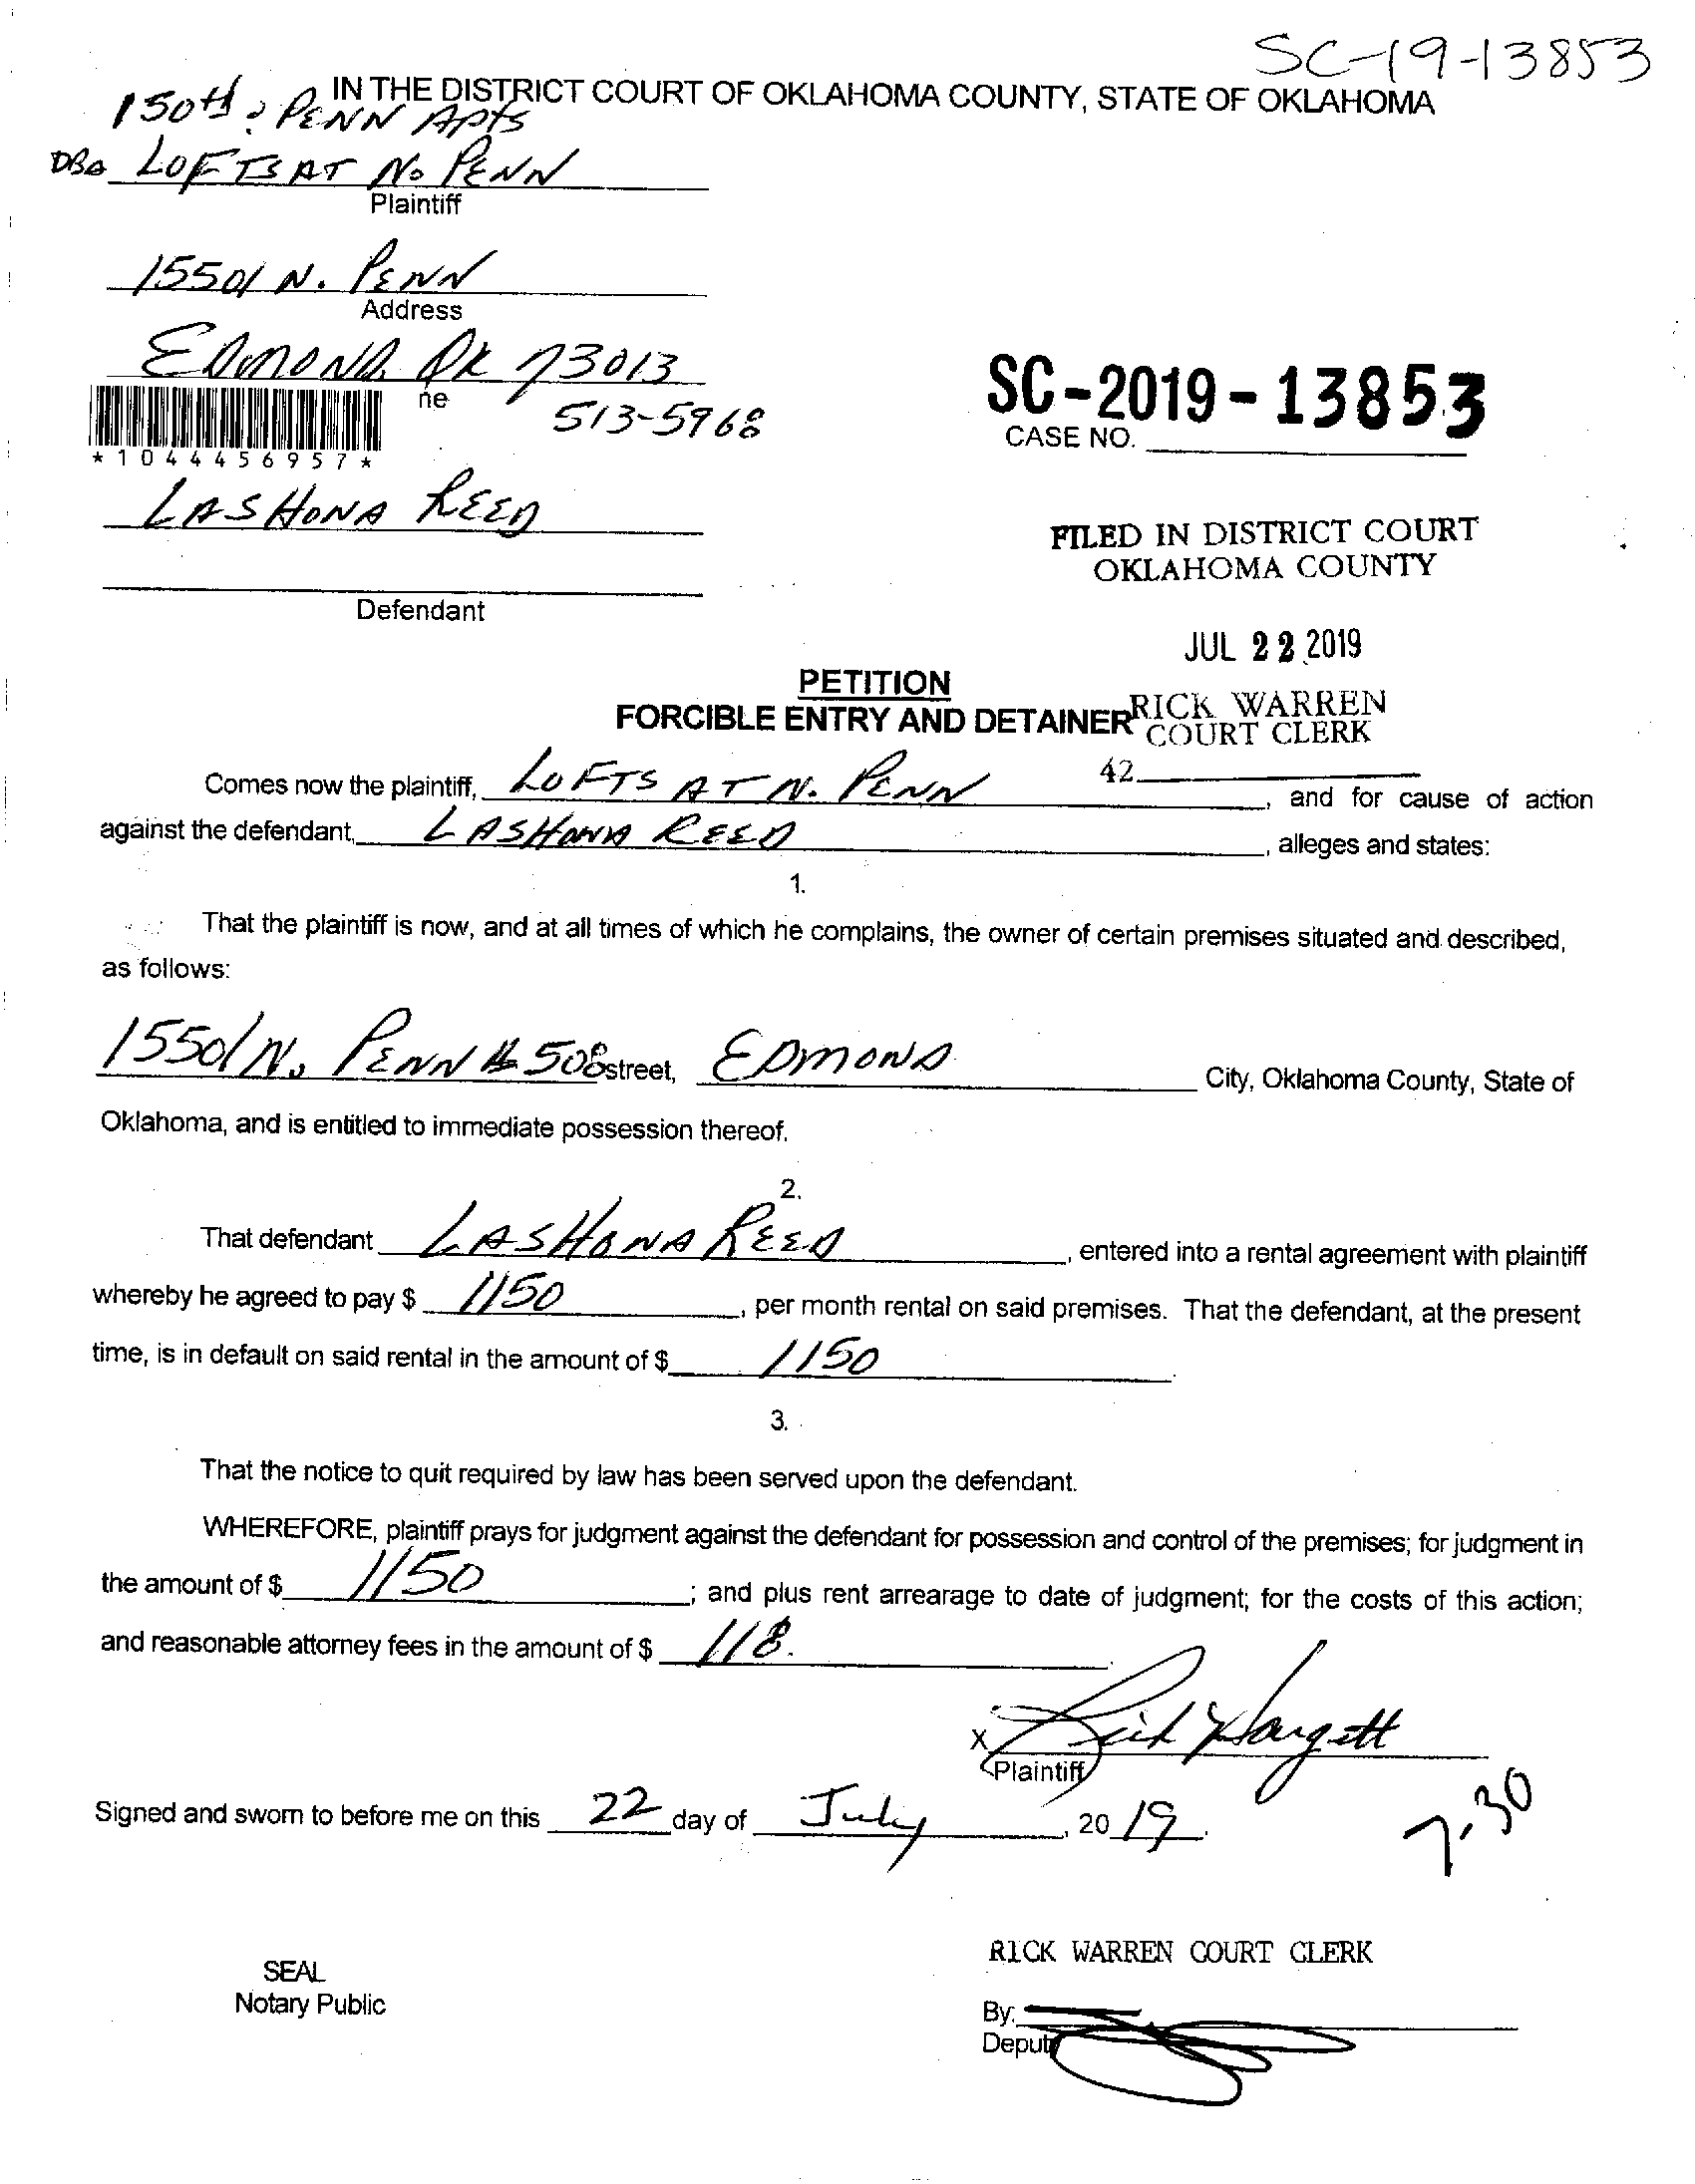 SC-19-13853
IN THE DISTRICT COURT OF OKLAHOMA COUNTY, STATE OF OKLAHOMA
150th & PENN APTS
DBA LOFTS AT No PENN
Plaintiff
15501 N. PENN
Address
EDMOND, OK 73013
ne
513-5968
*1044456957*
SC-2019-13853
CASE NO.
LASHONA REED
Defendant
FILED IN DISTRICT COURT
OKLAHOMA COUNTY
JUL 22 2019
RICK WARREN
COURT CLERK
42
PETITION
FORCIBLE ENTRY AND DETAINER
Comes now the plaintiff, LOFTS AT N. PENN, and for cause of action
against the defendant, LASHONA REED, alleges and states:
1.
That the plaintiff is now, and at all times of which he complains, the owner of certain premises situated and described,
as follows:
15501 N. PENN # 508 street, EDMOND City, Oklahoma County, State of
Oklahoma, and is entitled to immediate possession thereof.
2.
That defendant LASHONA REED, entered into a rental agreement with plaintiff
whereby he agreed to pay $ 1150, per month rental on said premises. That the defendant, at the present
time, is in default on said rental in the amount of $ 1150.
3.
That the notice to quit required by law has been served upon the defendant.
WHEREFORE, plaintiff prays for judgment against the defendant for possession and control of the premises; for judgment in
the amount of $ 1150; and plus rent arrearage to date of judgment; for the costs of this action;
and reasonable attorney fees in the amount of $ 118.
X Rick Hargett
Plaintiff
Signed and sworn to before me on this 22 day of July, 2019.
7.30
SEAL
Notary Public
RICK WARREN COURT CLERK
By:
Deputy